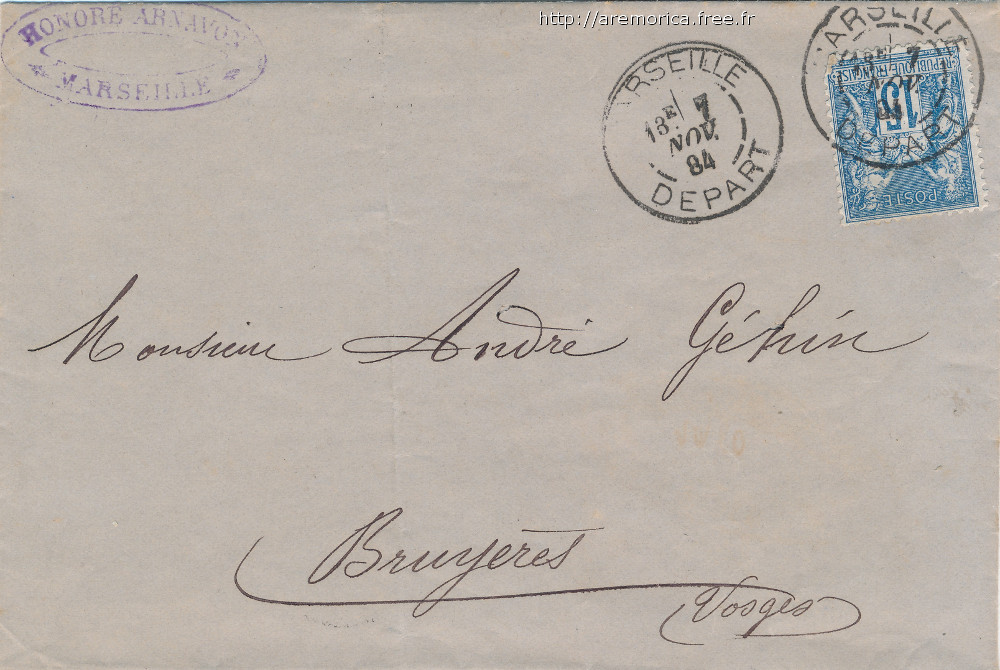 http://aremorica.free.fr
HONORÉ ARNAVON
MARSEILLE
MARSEILLE
13E 7
NOV.
84
DEPART
MARSEILLE
7
NOV.
84
DEPART
REPUBLIQUE FRANÇAISE
15
POSTE
Monsieur André Géhin
Bruyères
Vosges